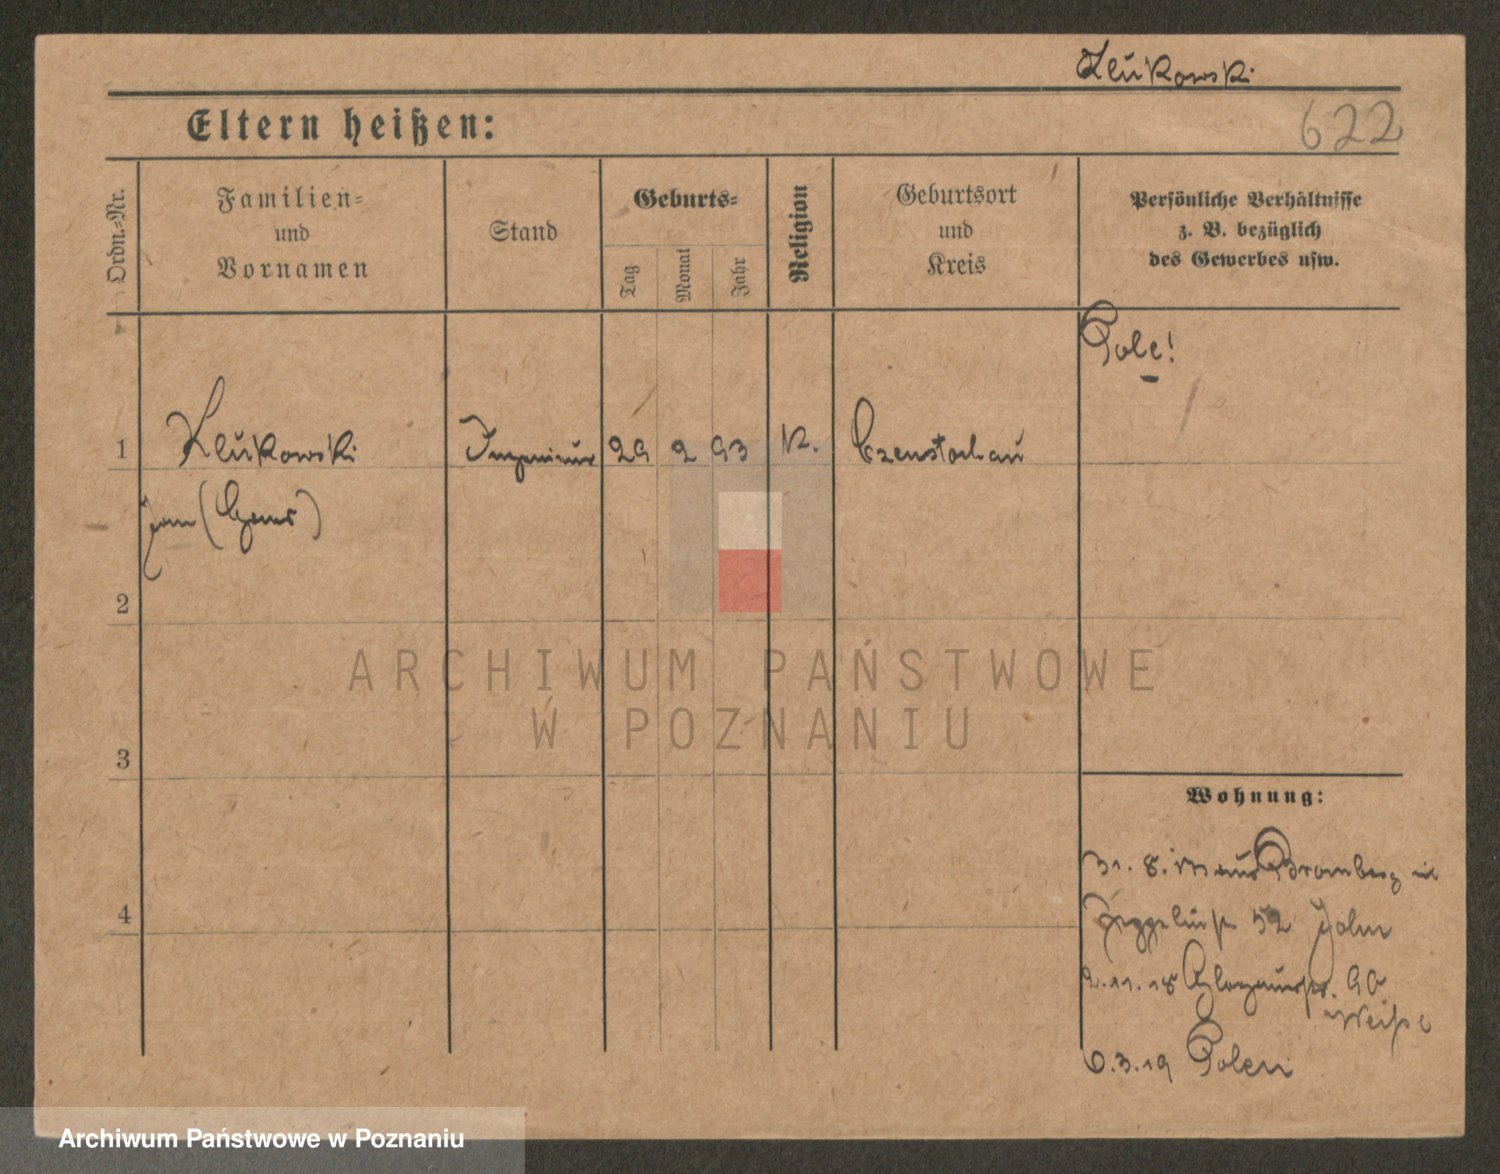 Klukowski
Eltern heißen:
622
Ordn.-Nr.
Familien-
und
Vornamen
Stand
Geburts-
Tag
Monat
Jahr
Religion
Geburtsort
und
Kreis
Persönliche Verhältnisse
z. B. bezüglich
des Gewerbes usw.
Pole!
1 Klukowski Ingenieur 29 2 93 K. Czenstochau
Jan (Hans)
2
3
4
ARCHIWUM PAŃSTWOWE
W POZNANIU
Wohnung:
31. 8. 18 aus Bromberg
52 Jahn
2.11.18 Glogauerstr. 90
Weiß
6.3.19 Polen
Archiwum Państwowe w Poznaniu